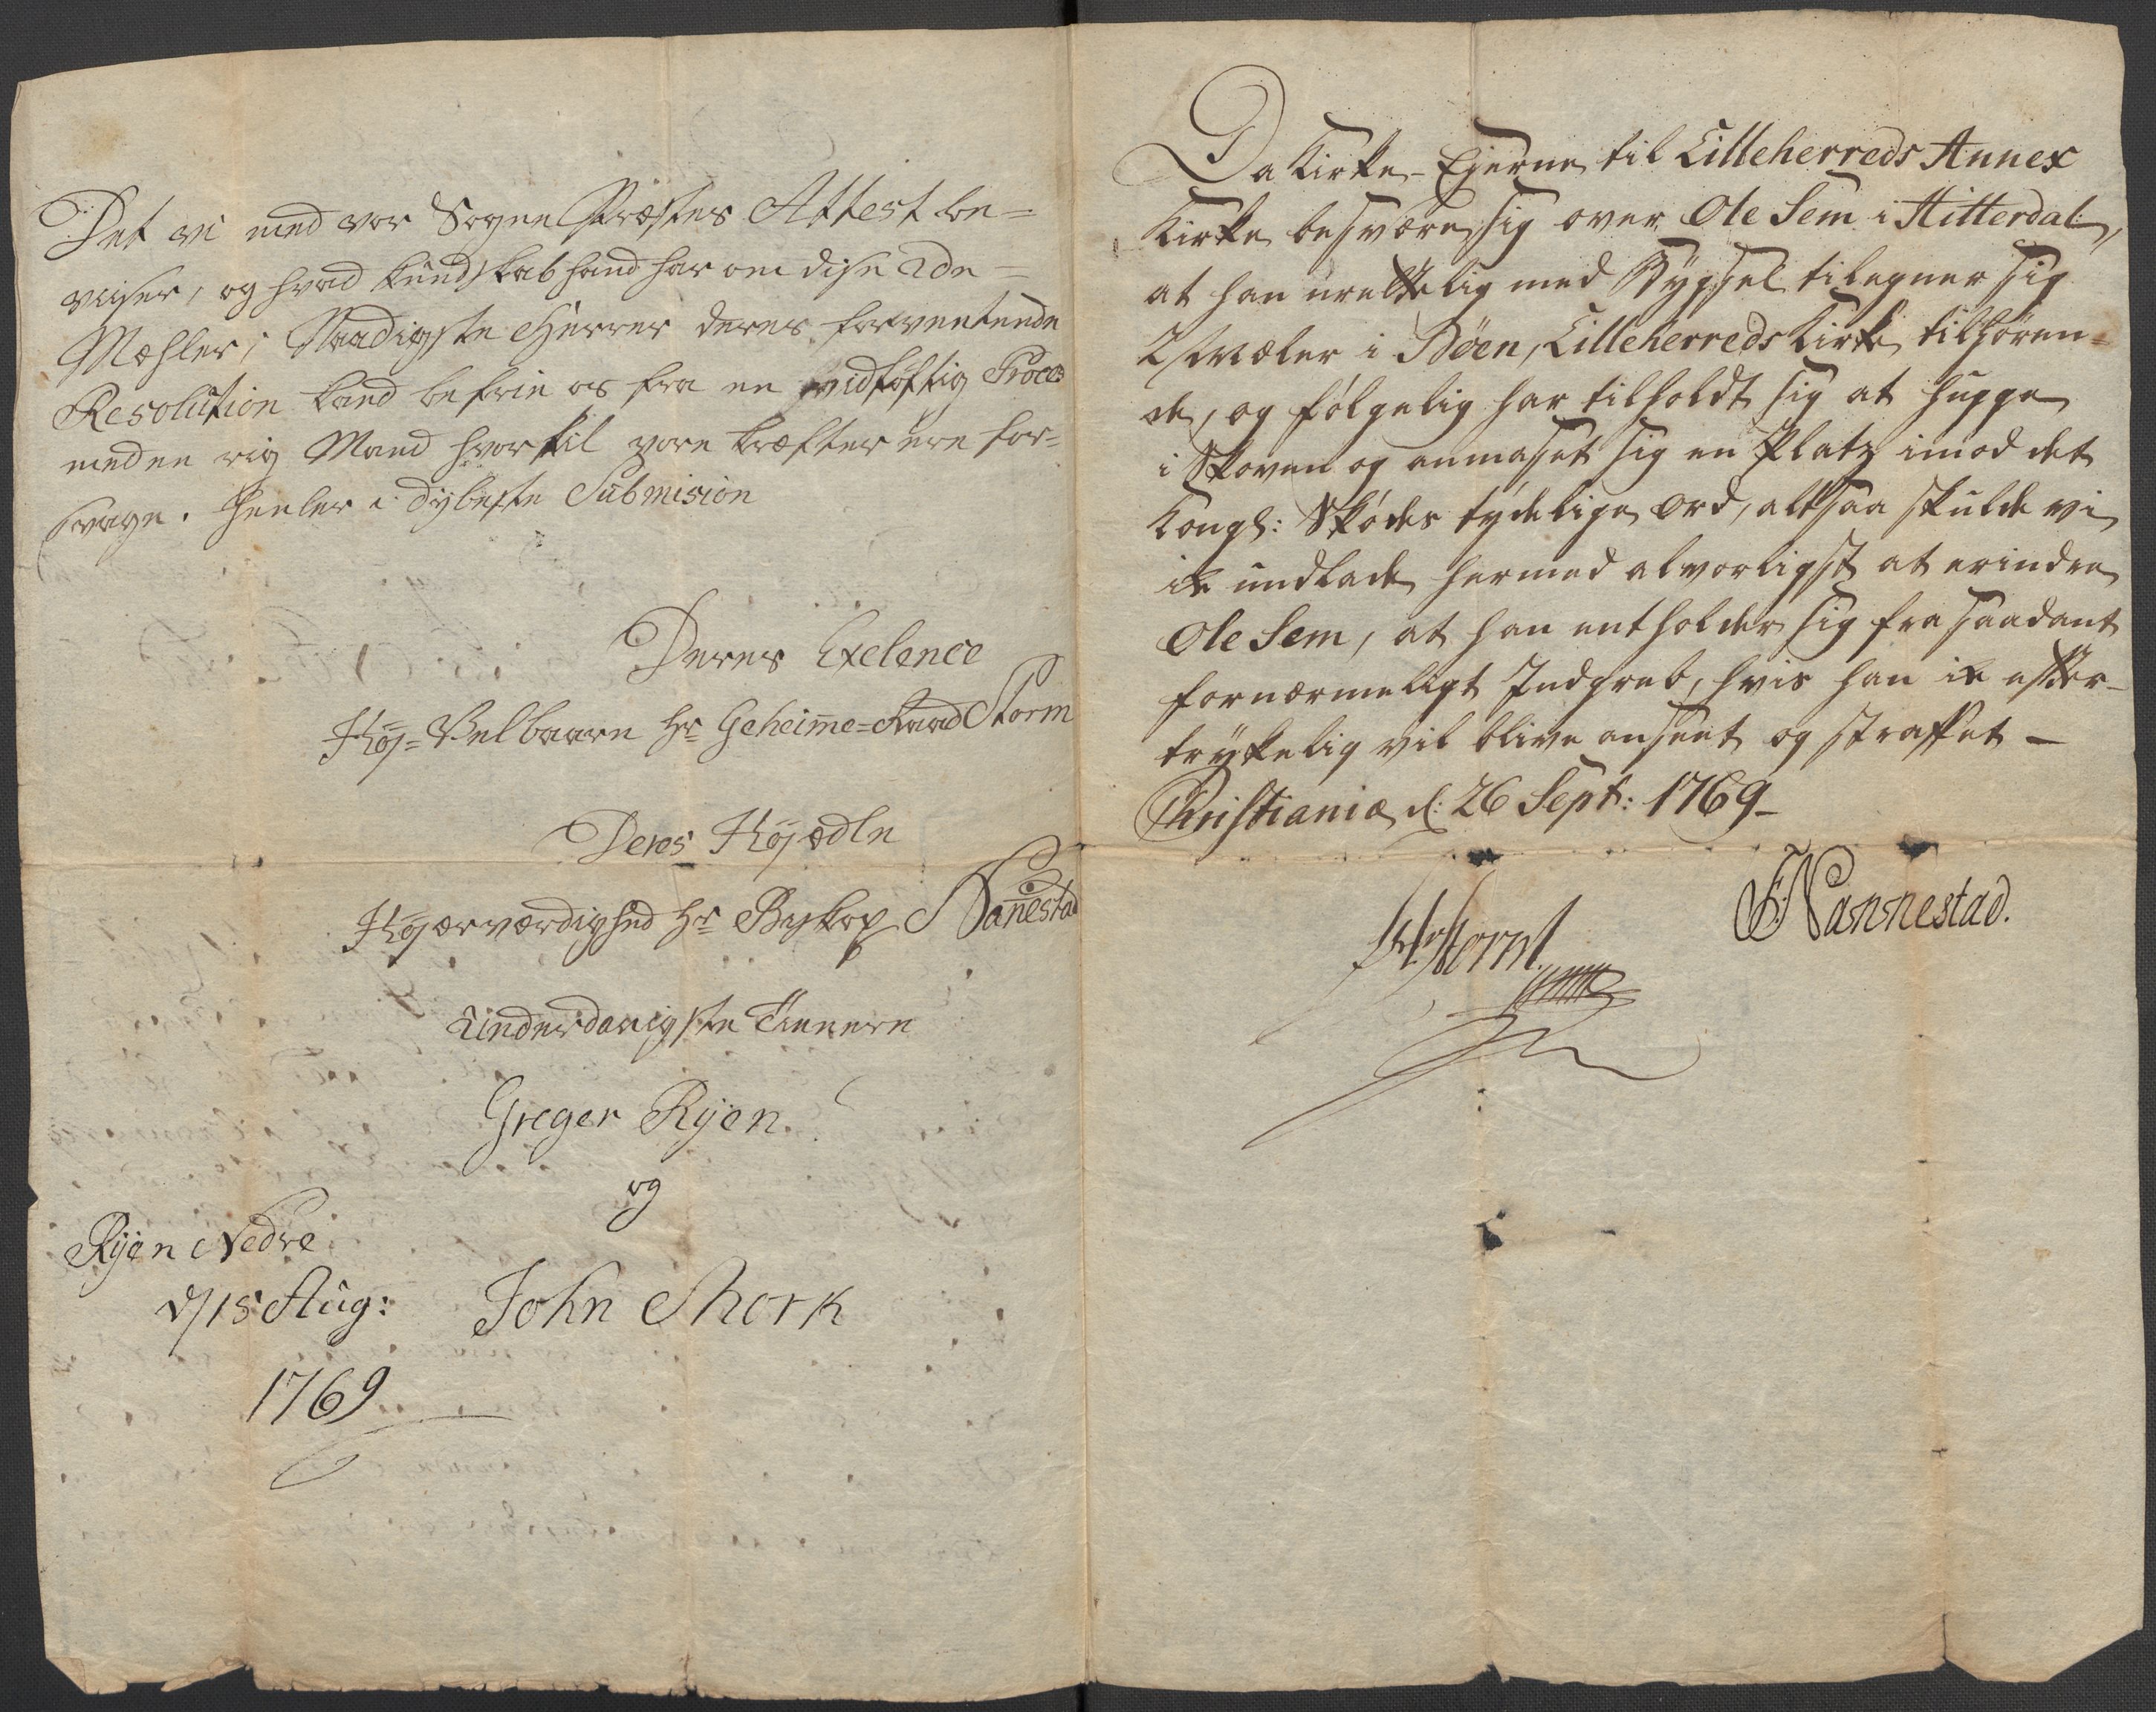 Det vi med vor Sogne Præstes Attest be=
viser, og hvad kundskab hand har om disse 2de
Mæhler; Naadigste Herrer deres forventende
Resolution kand befrie os fra en vidløftig Proces
med en rig Mand hvortil vore kræfter ere for=
svage. henlev i dybeste Submision
Deres Exelence
Høj=Velbaarn Hr Geheime=Raad Storm
Deres Højædle
Højærværdighed Hr Biskop Nanestad
Underdanigste Tienere
Greger Rÿen
og
Rÿen Nedre
d/15 Aug: John Skork
1769
Da Kirke-Ejerne til Lilleherreds Annex
Kirke besværer sig over Ole Sem i Hitterdal,
at han urettelig med Bygsel tilegner sig
2 Mæler i Bøen, Lilleherreds Kirke tilhøren=
de, og følgelig har tilholdt sig at hugge
i Skoven og anmaset sig en Platz imod det
Kongl: Skødes tydelige Ord, altsaa skulde vi
ik undlade hermed alvorligst at erindre
Ole Sem, at han entholder sig fra saadant
fornærmeligt Indgreb, hvis han ik efter-
trÿkelig vil blive anseet og straffet –
Christiania d: 26 Sept: 1769–
Storm
F Nannestad.